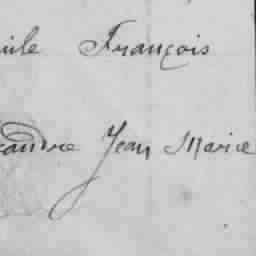 ile François
andre Jean Marie